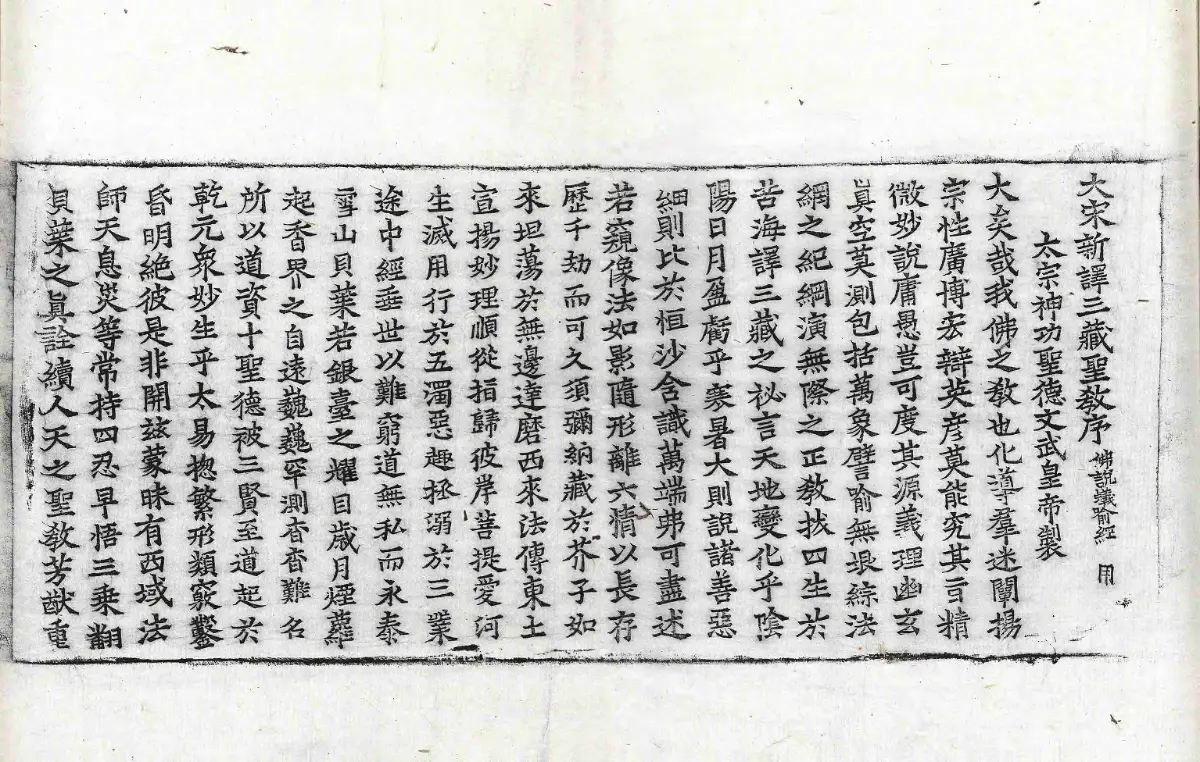 大宋新譯三藏聖教序 佛說蟻喻經 用
太宗神功聖德文武皇帝製
大矣哉我佛之教也化導羣迷闡揚
宗性廣博宏辯英彦莫能究其旨精
微妙說庸愚豈可度其源義理幽玄
眞空莫測包括萬象譬喻無垠綜法
網之紀綱演無際之正教拔四生於
苦海譯三藏之祕言天地變化乎陰
陽日月盈虧乎寒暑大則說諸善惡
細則比於恒沙含識萬端弗可盡述
若窺像法如影隨形離六情以長存
歷千劫而可久須彌納藏於芥子如
來坦蕩於無邊達磨西來法傳東土
宣揚妙理順從指歸彼岸菩提愛河
生滅用行於五濁惡趣拯溺於三業
途中經垂世以難窮道無私而永泰
雪山貝葉若銀臺之耀目歲月煙蘿
起香界之自遠巍巍罕測杳杳難名
所以道資十聖德被三賢至道起於
乾元衆妙生乎太易揔繁形類竅鑿
昏明絶彼是非開兹蒙昧有西域法
師天息災等常持四忍早悟三乘翻
貝葉之眞詮續人天之聖教芳猷重